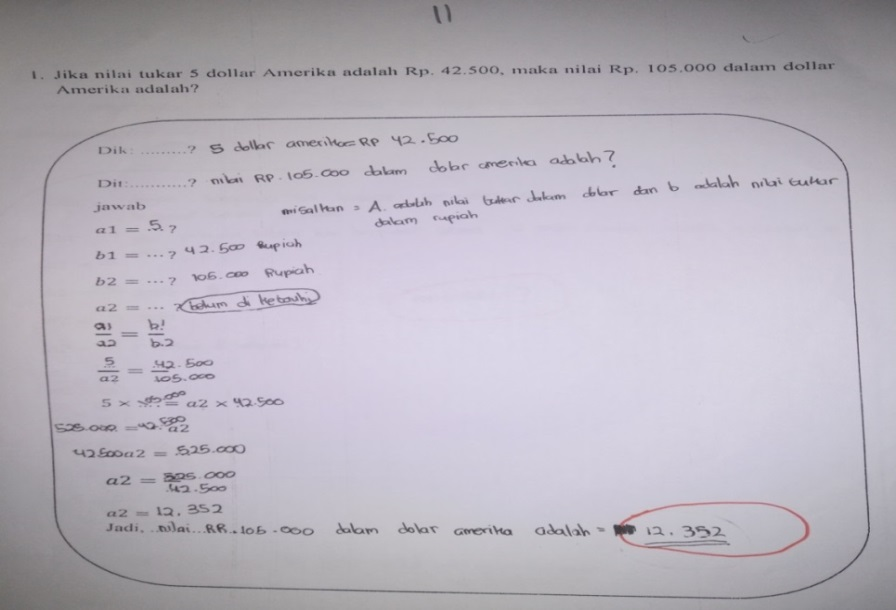 11
1. Jika nilai tukar 5 dollar Amerika adalah Rp. 42.500, maka nilai Rp. 105.000 dalam dollar
Amerika adalah?
Dik: .........? 5 dollar amerika= RP 42.500
Dit:............? nilai RP. 105.000 dalam dolar amerika adalah?
jawab misalkan = A. adalah nilai tukar dalam dolar dan b adalah nilai tukar
dalam rupiah
a1 = 5 ?
b1 = ...? 42.500 Rupiah
b2 = ...? 105.000 Rupiah
a2 = ... ? (belum di ketahui)
a1/a2 = b1/b.2
5/a2 = 42.500/105.000
5 × 105.000 = a2 × 42.500
525.000 = 42.500 a2
42500a2 = 525.000
a2 = 525.000/42.500
a2 = 12,352
Jadi, nilai RP. 105.000 dalam dolar amerika adalah = 12.352